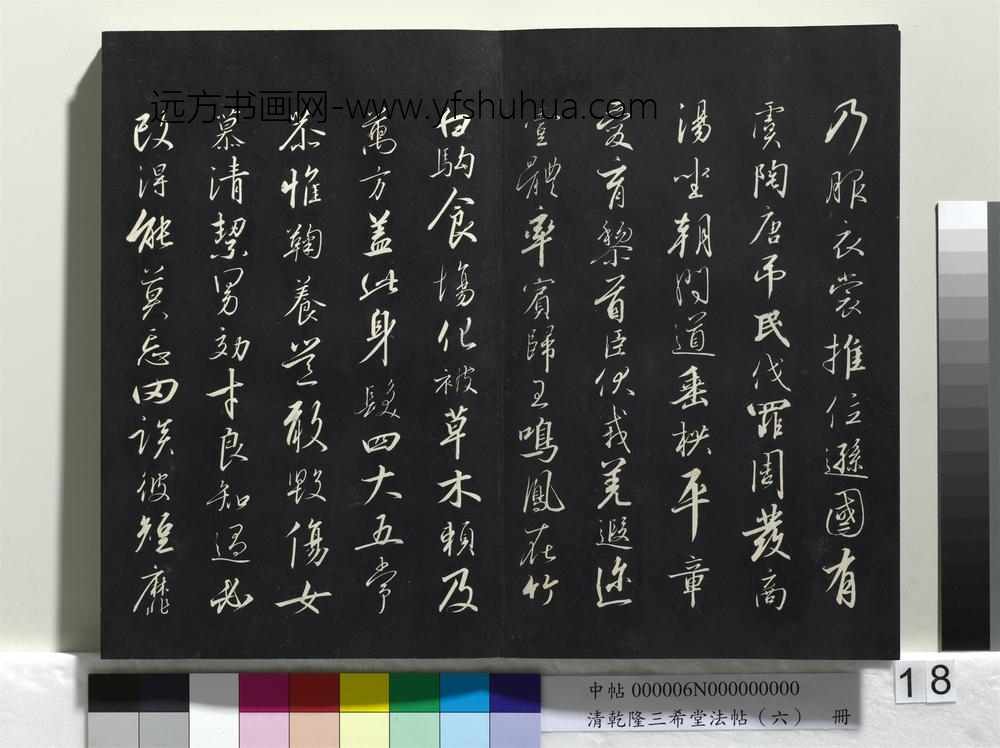 乃服衣裳推位遜國有
虞陶唐吊民伐罪周發商
湯坐朝問道垂拱平章
愛育黎首臣伏戎羌遐迩
壹體率賓歸王鳴鳳在竹
白駒食場化被草木賴及
萬方蓋此身髮四大五常
恭惟鞠養豈敢毀傷女
慕清絜男効才良知過必
改得能莫忘罔談彼短靡
远方书画网-www.yfshuhua.com
中帖 000006N000000000
清乾隆三希堂法帖（六） 冊
18